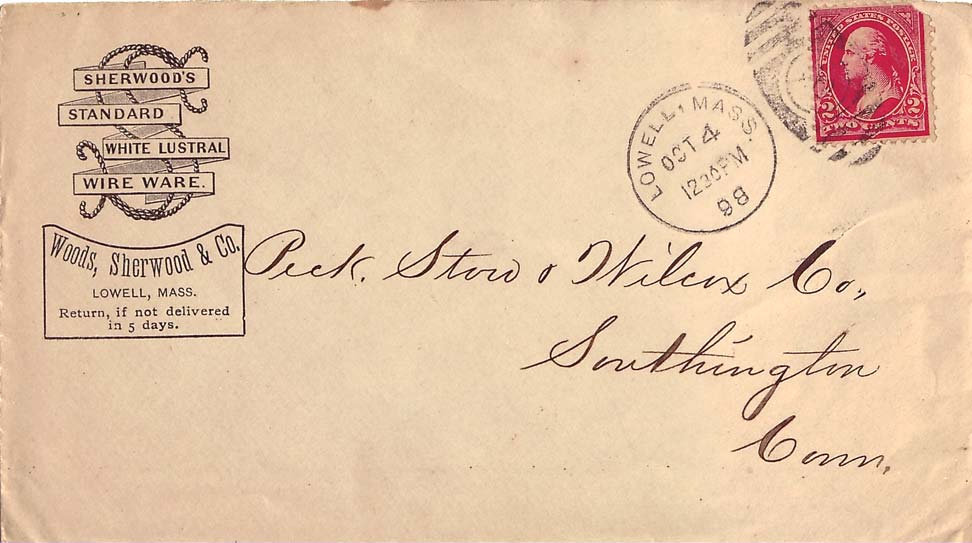 SHERWOOD'S
STANDARD
WHITE LUSTRAL
WIRE WARE.
Woods, Sherwood & Co.
LOWELL, MASS.
Return, if not delivered
in 5 days.
LOWELL, MASS.
OCT 4
1230PM
98
UNITED STATES POSTAGE
2 2
TWO CENTS
Peck, Stow & Wilcox Co.,
Southington
Conn.